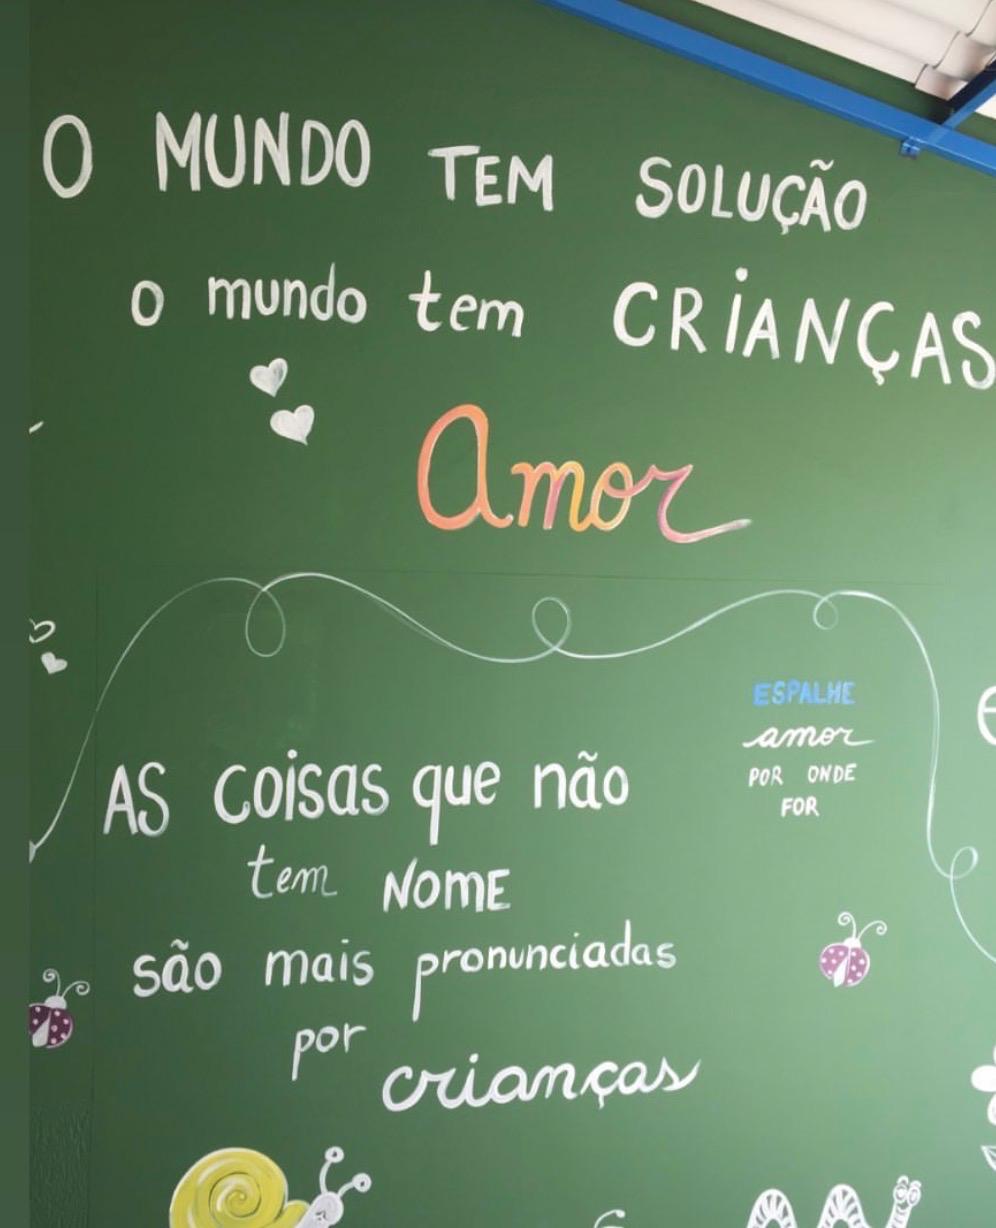 O MUNDO TEM SOLUÇÃO
o mundo tem CRIANÇAS
Amor
ESPALHE
amor
POR ONDE
FOR
AS coisas que não
tem NOME
são mais pronunciadas
por
crianças